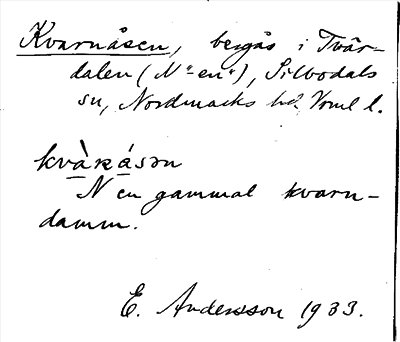 Kvarnåsen, bergås i Tvär-
dalen (N "en"), Silbodals
sn, Nordmarks hd. Vrml l.
kvàɴásən
N en gammal kvarn-
damm.
E. Andersson 1933.